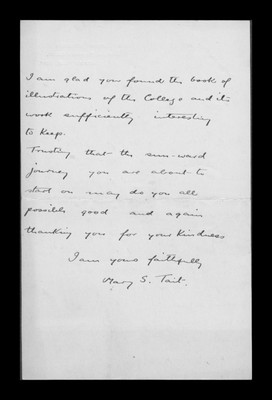 I am glad you found the book of
illustrations of the College and its
work sufficiently interesting
to keep.
Trusting that the sun-ward
journey you are about to
start on may do you all
possible good and again
thanking you for your kindness
I am yours faithfully
Mary S. Tait.